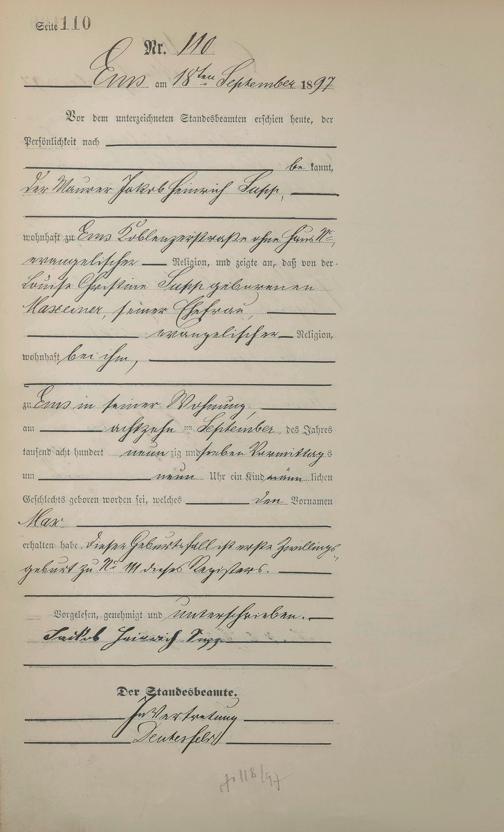 Seite 110
Nr. 110
Ems am 18ten September 1897
Vor dem unterzeichneten Standesbeamten erschien heute, der
Persönlichkeit nach
be kannt,
der Maurer Jakob Heinrich
wohnhaft zu Ems Koblenzerstraße ohne Haus No,
evangelischer Religion, und zeigte an, daß von der
Louise Christine geborenen
Maxeiner, seiner Ehefrau,
evangelischer Religion,
wohnhaft bei ihm,
zu Ems in seiner Wohnung,
am achtzehn ten September des Jahres
tausend acht hundert neun zig und sieben Vormittags
um neun Uhr ein Kind männ lichen
Geschlechts geboren worden sei, welches den Vornamen
Max
erhalten habe. Dieser Geburtsfall ist erste Zwillings-
geburt zu No 111 dieses Registers.
Vorgelesen, genehmigt und unterschrieben.
Jakob Heinrich
Der Standesbeamte.
In Vertretung